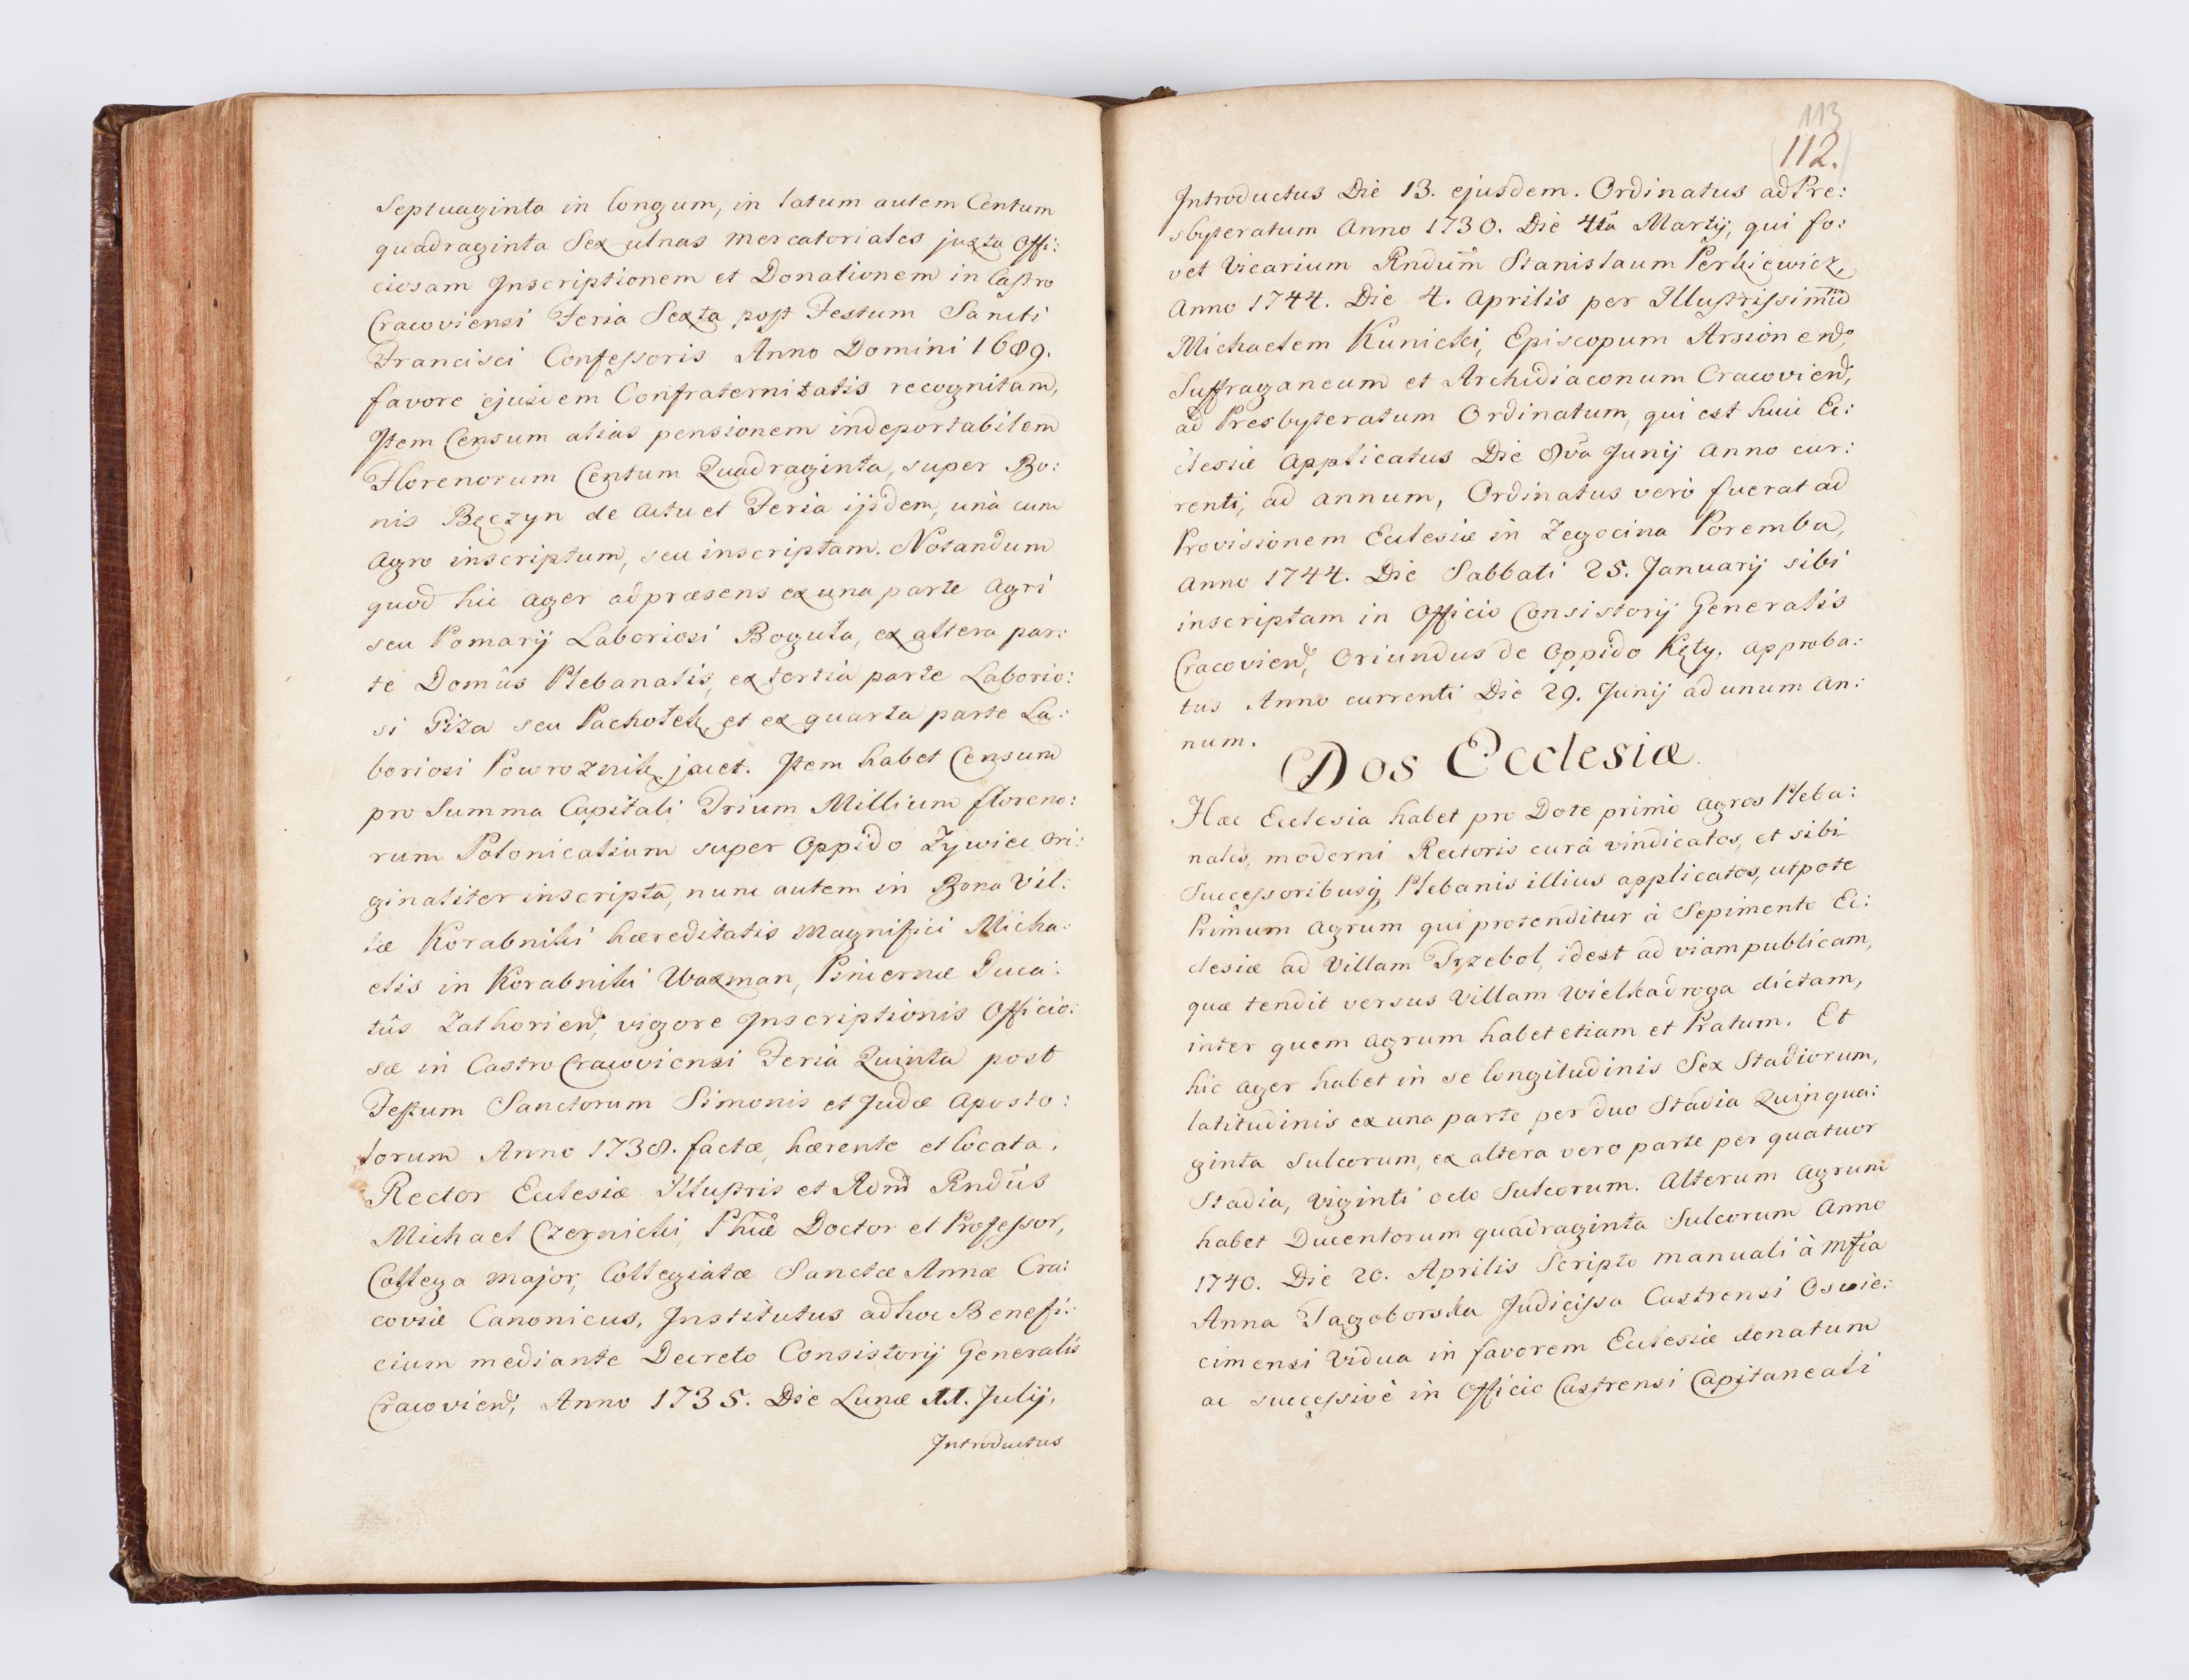 Septuaginta in longum, in latum autem Centum
quadraginta Sex ulnas mercatoriales juxta Offi:
ciosam Inscriptionem et Donationem in Castro
Cracoviensi Feria Sexta post Festum Sancti
Francisci Confessoris Anno Domini 1689.
favore ejusdem Confraternitatis recognitam,
Item Censum alias pensionem indeportabilem
Florenorum Centum Quadraginta, super Bo:
nis Bęczyn de actu et Feria ijsdem, unà cum
agro inscriptum, seu inscriptam. Notandum
quod hic ager ad præsens ex una parte Agri
seu Pomarij Laboriosi Boguta, ex altera par:
te Domûs Plebanalis, ex tertia parte Laborio:
si Giza seu Pachołek, et ex quarta parte La:
boriosi Powroznik jacet. Item habet Censum
pro Summa Capitali Trium Millium floreno:
rum Polonicalium super Oppido Zywiec ori:
ginaliter inscripta, nunc autem in Bona Vil:
læ Korabniki hæreditatis Magnifici Micha:
elis in Korabniki Waxman, Pincernæ Duca:
tûs Zathorien, vigore Inscriptionis Officio:
sæ in Castro Cracoviensi Feria Quinta post
Festum Sanctorum Simonis et Judæ Aposto:
lorum Anno 1738. factæ, hærente et locata.
Rector Ecclesiæ Illustris et Admd Rndus
Michael Czernicki, Phiæ Doctor et Professor,
Collega major, Collegiatæ Sanctæ Annæ Cra:
coviæ Canonicus, Institutus ad hoc Benefi:
cium mediante Decreto Consistorij Generalis
Cracovien, Anno 1735. Die Lunæ 11. Julij,
Introductus
113
112.
Introductus Die 13. ejusdem. Ordinatus ad Pre:
sbyteratum Anno 1730. Die 4ta Martij, qui fo:
vet Vicarium Rndum Stanislaum Perkiewicz,
Anno 1744. Die 4. Aprilis per Illustrissimum
Michaelem Kunicki, Episcopum Arsionen,
Suffraganeum et Archidiaconum Cracovien,
ad Presbyteratum Ordinatum, qui est huic Ec:
clesiæ Applicatus Die 8va Junij Anno cur:
renti, ad annum, Ordinatus verò fuerat ad
Provisionem Ecclesiæ in Zegocina Poremba,
Anno 1744. Die Sabbati 25. Januarij sibi
inscriptam in Officio Consistorij Generalis
Cracovien, Oriundus de Oppido Kęty, approba:
tus Anno currenti Die 29. Junij ad unum An:
num.
Dos Ecclesiæ.
Hæc Ecclesia habet pro Dote primo agros Pleba:
nales, moderni Rectoris curâ vindicatos, et sibi
Successoribusq; Plebanis illius applicatos, utpote
Primum Agrum qui protenditur à Sepimento Ec:
clesiæ ad Villam Trzebol, idest ad viam publicam,
quæ tendit versus Villam Wielkadroga dictam,
inter quem agrum habet etiam et Pratum. Et
hic ager habet in se longitudinis Sex Stadiorum,
latitudinis ex una parte per duo Stadia Quinqua:
ginta Sulcorum, ex altera vero parte per quatuor
Stadia, viginti octo Sulcorum. Alterum Agrum
habet Ducentorum quadraginta Sulcorum Anno
1740. Die 20. Aprilis Scripto manuali à Mfica
Anna Jagoborska Judicissa Castrensi Oswie:
cimensi Vidua in favorem Ecclesiæ donatum
ac successivè in Officio Castrensi Capitaneali